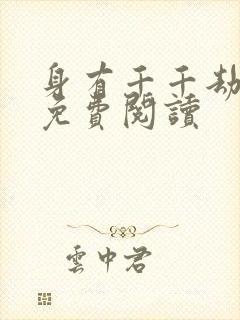 身有千千劫
免費閱讀
雲中君